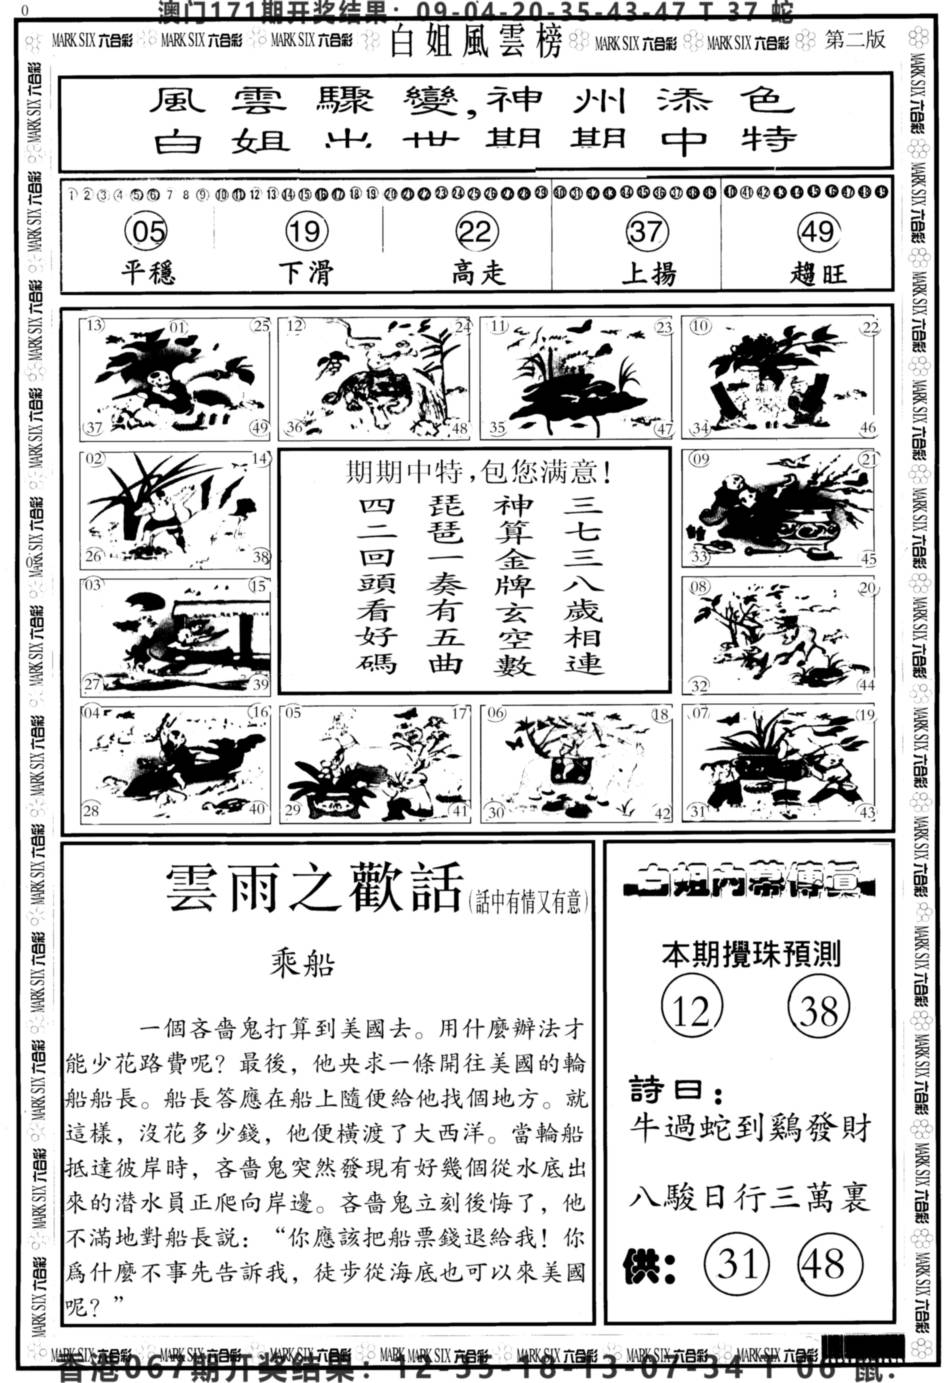 0
澳门171期开奖结果：09-04-20-35-43-47 T 37 蛇
MARK SIX 六合彩 MARK SIX 六合彩 MARK SIX 六合彩 白姐風雲榜 MARK SIX 六合彩 MARK SIX 六合彩 第二版
風雲驟變,神州添色
白姐出世期期中特
1 2 3 4 5 6 7 8 9 10 11 12 13 14 15 16 17 18 19 20 21 22 23 24 25 26 27 28 29 30 31 32 33 34 35 36 37 38 39 40 41 42 43 44 45 46 47 48 49
05 19 22 37 49
平穩 下滑 高走 上揚 趨旺
13 01 25 12 24 11 23 10 22
37 49 36 48 35 47 34 46
02 14
26 38
03 15
27 39
期期中特,包您满意!
三七三八歲相連
神算金牌玄空數
琵琶一奏有五曲
四二回頭看好碼
09 21
33 45
08 20
32 44
04 16 05 17 06 18 07 19
28 40 29 41 30 42 31 43
雲雨之歡話(話中有情又有意)
乘船
一個吝嗇鬼打算到美國去。用什麼辦法才
能少花路費呢？最後，他央求一條開往美國的輪
船船長。船長答應在船上隨便給他找個地方。就
這樣，沒花多少錢，他便橫渡了大西洋。當輪船
抵達彼岸時，吝嗇鬼突然發現有好幾個從水底出
來的潜水員正爬向岸邊。吝嗇鬼立刻後悔了，他
不滿地對船長説：“你應該把船票錢退給我！你
爲什麼不事先告訴我，徒步從海底也可以來美國
呢？”
白姐内幕傳真
本期攪珠預測
12 38
詩曰：
牛過蛇到鷄發財
八駿日行三萬裏
供： 31 48
MARK SIX 六合彩 MARK SIX 六合彩 MARK SIX 六合彩 MARK MARK SIX 六合彩 MARK SIX 六合彩 MARK SIX 六合彩 MARK SIX 六合彩
香港067期开奖结果：12-35-18-13-07-34 T 06 鼠.